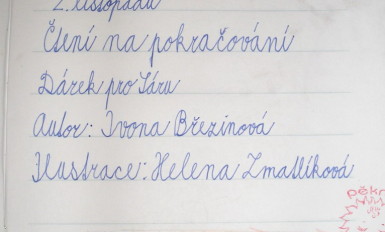 2. listopadu
Čtení na pokračování
Dárek pro Sáru
Autor: Ivona Březinová
Ilustrace: Helena Zmatlíková
pěkn